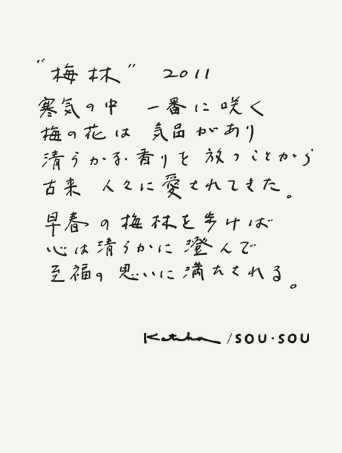 "梅林" 2011
寒気の中 一番に咲く
梅の花は 気品があり
清らかな香りを 放つことから
古来 人々に愛されてきた。
早春の梅林を歩けば
心は清らかに澄んで
至福の思いに満たされる。
Katsuha /SOU·SOU